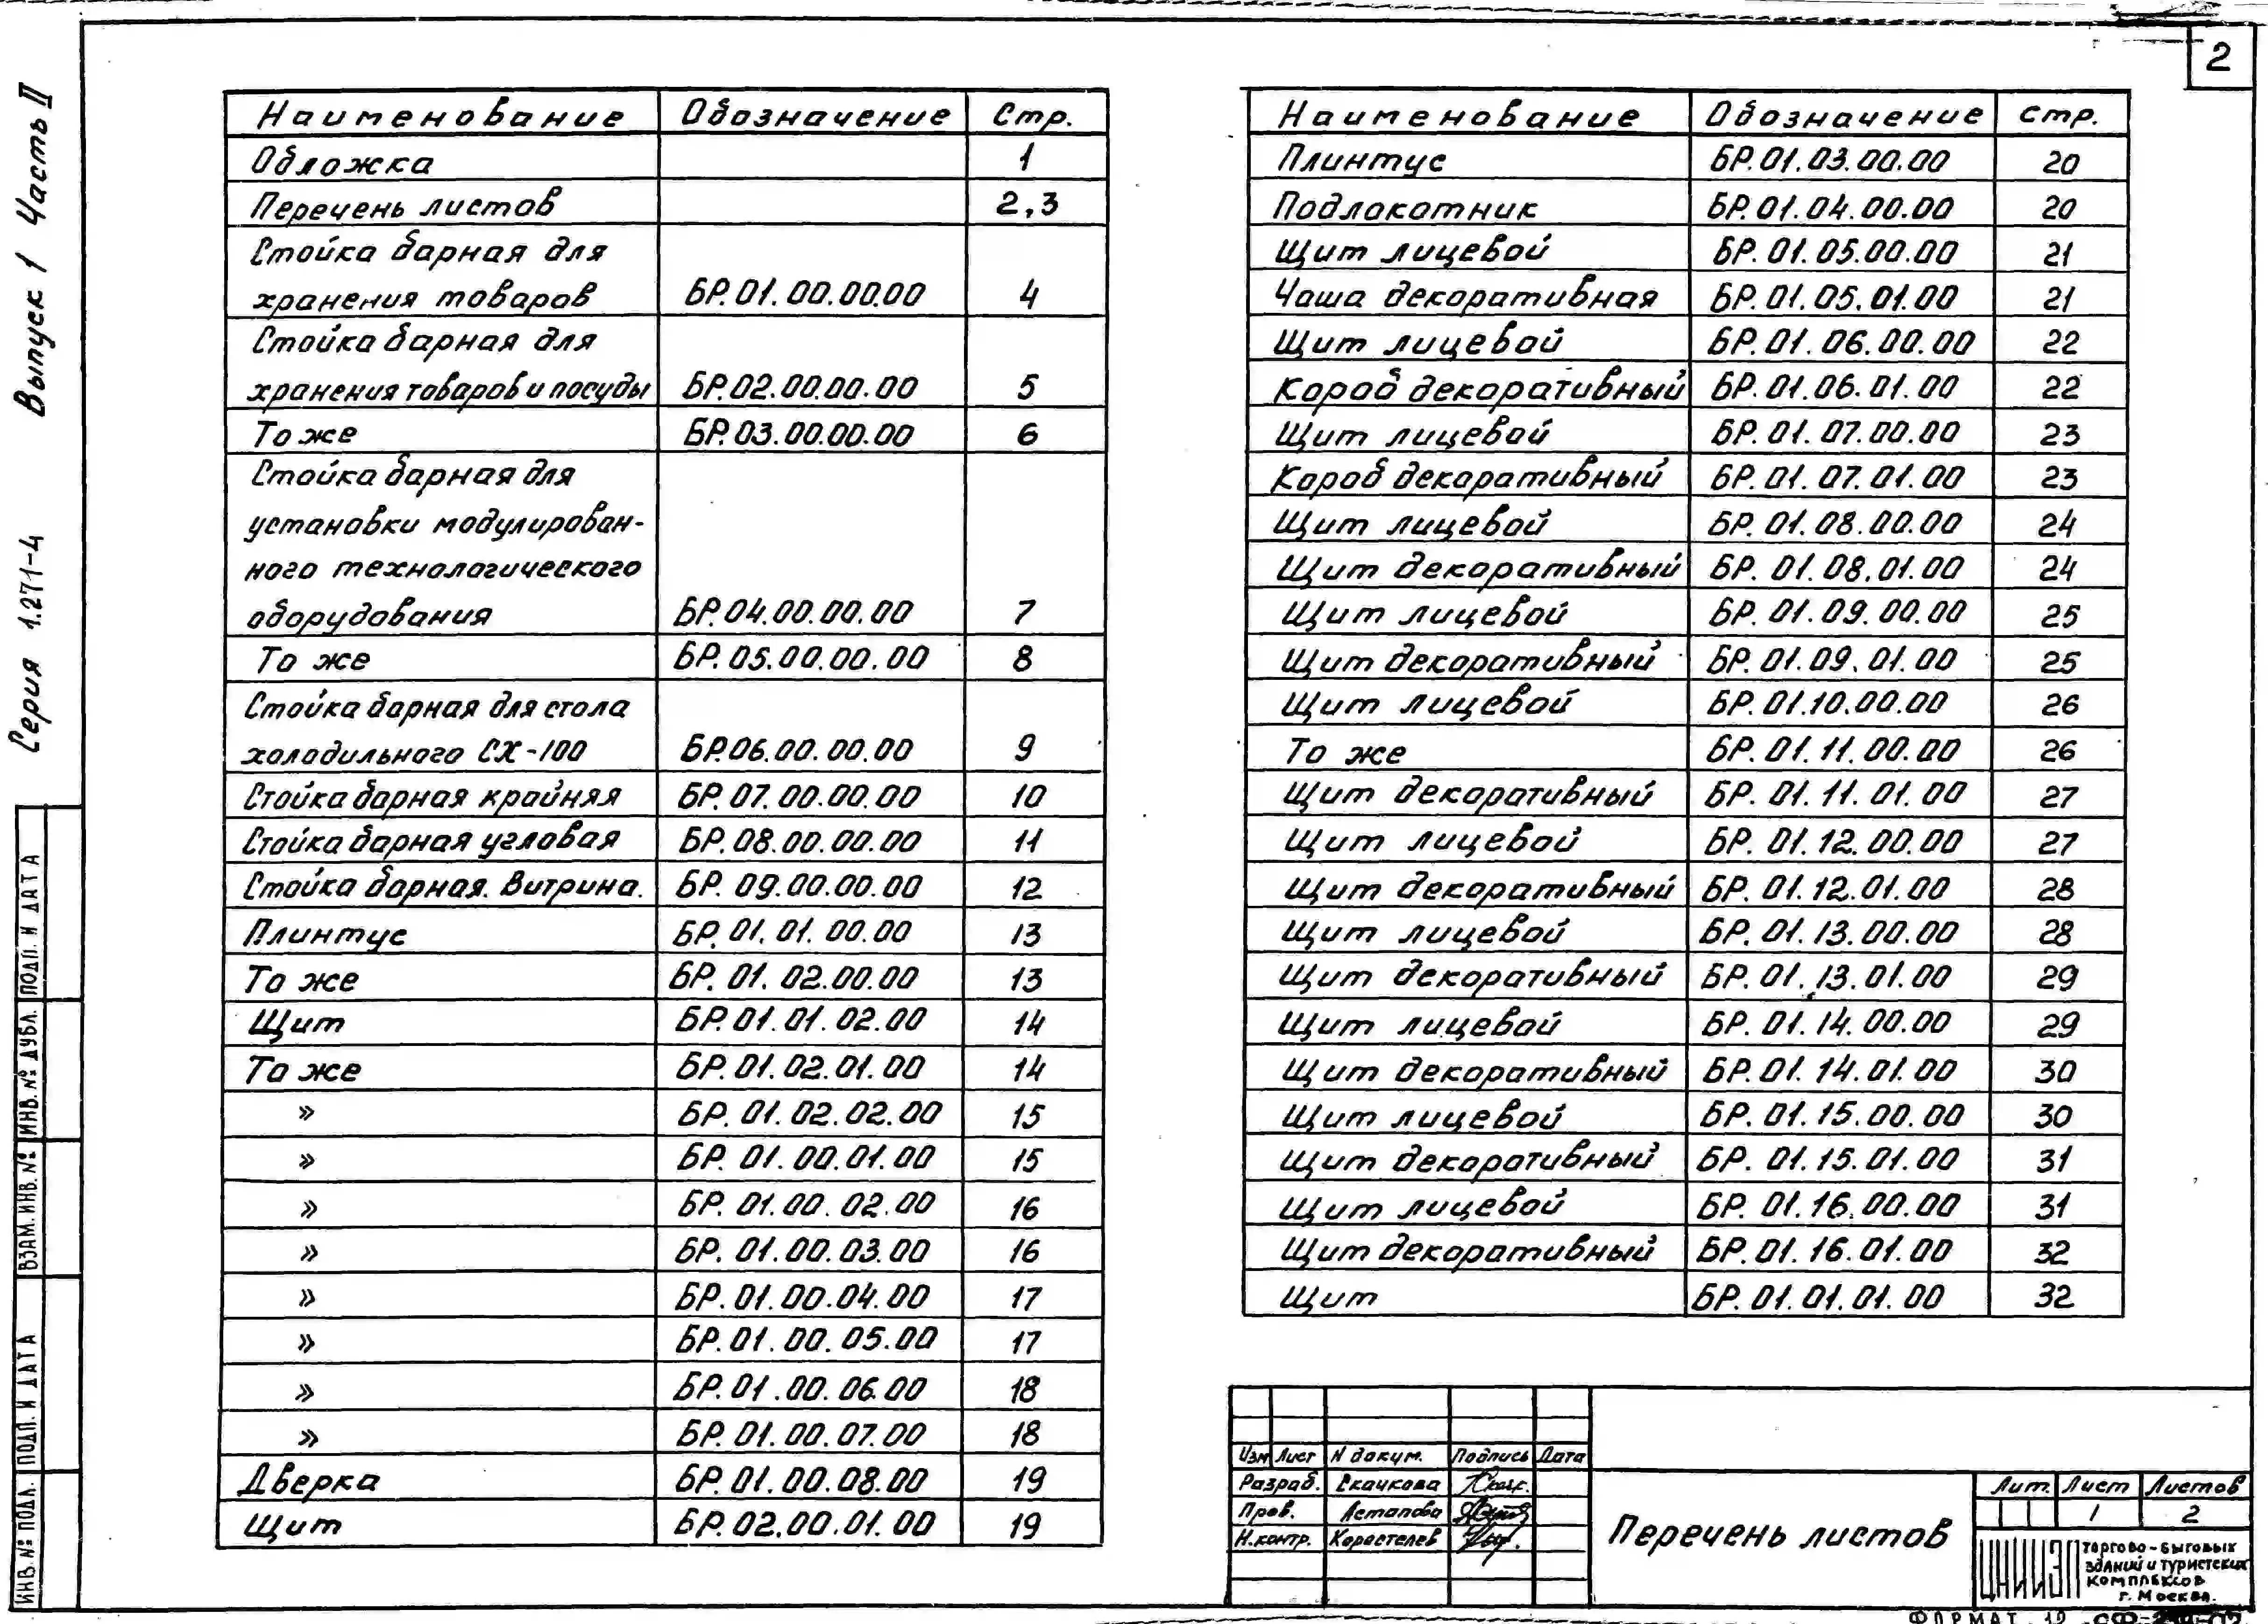 2
Серия 1.271-4 Выпуск 1 Часть II
Наименование Обозначение Стр.
Обложка 1
Перечень листов 2,3
Стойка барная для
хранения товаров БР.01.00.00.00 4
Стойка барная для
хранения товаров и посуды БР.02.00.00.00 5
То же БР.03.00.00.00 6
Стойка барная для
установки модулирован-
ного технологического
оборудования БР.04.00.00.00 7
То же БР.05.00.00.00 8
Стойка барная для стола
холодильного СХ-100 БР.06.00.00.00 9
Стойка барная крайняя БР.07.00.00.00 10
Стойка барная угловая БР.08.00.00.00 11
Стойка барная. Витрина. БР.09.00.00.00 12
Плинтус БР.01.01.00.00 13
То же БР.01.02.00.00 13
Щит БР.01.01.02.00 14
То же БР.01.02.01.00 14
» БР.01.02.02.00 15
» БР.01.00.01.00 15
» БР.01.00.02.00 16
» БР.01.00.03.00 16
» БР.01.00.04.00 17
» БР.01.00.05.00 17
» БР.01.00.06.00 18
» БР.01.00.07.00 18
Дверка БР.01.00.08.00 19
Щит БР.02.00.01.00 19
Наименование Обозначение стр.
Плинтус БР.01.03.00.00 20
Подлокотник БР.01.04.00.00 20
Щит лицевой БР.01.05.00.00 21
Чаша декоративная БР.01.05.01.00 21
Щит лицевой БР.01.06.00.00 22
Короб декоративный БР.01.06.01.00 22
Щит лицевой БР.01.07.00.00 23
Короб декоративный БР.01.07.01.00 23
Щит лицевой БР.01.08.00.00 24
Щит декоративный БР.01.08.01.00 24
Щит лицевой БР.01.09.00.00 25
Щит декоративный БР.01.09.01.00 25
Щит лицевой БР.01.10.00.00 26
То же БР.01.11.00.00 26
Щит декоративный БР.01.11.01.00 27
Щит лицевой БР.01.12.00.00 27
Щит декоративный БР.01.12.01.00 28
Щит лицевой БР.01.13.00.00 28
Щит декоративный БР.01.13.01.00 29
Щит лицевой БР.01.14.00.00 29
Щит декоративный БР.01.14.01.00 30
Щит лицевой БР.01.15.00.00 30
Щит декоративный БР.01.15.01.00 31
Щит лицевой БР.01.16.00.00 31
Щит декоративный БР.01.16.01.00 32
Щит БР.01.01.01.00 32
ИНВ.№ ПОДЛ. ПОДП. И ДАТА ВЗАМ.ИНВ.№ ИНВ.№ ДУБЛ. ПОДП. И ДАТА
Изм Лист N докум. Подпись Дата
Разраб. Скачкова
Пров. Астапова
Н.контр. Коростелев
Перечень листов
Лит. Лист Листов
1 2
ЦНИИЭП торгово-бытовых
зданий и туристских
комплексов
г. Москва.
ФОРМАТ 12